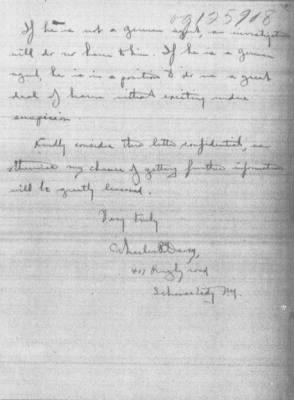 09125918
If he is not a German agent, an investigation
will do no harm to him. If he is a German
agent, he is in a position to do us a great
deal of harm without exciting undue
suspicion
Kindly consider this letter confidential, as
otherwise my chances of getting further information
will be greatly lessened.
Very truly
Wheeler P. Davey,
Rugby road
Schenectady N.Y.